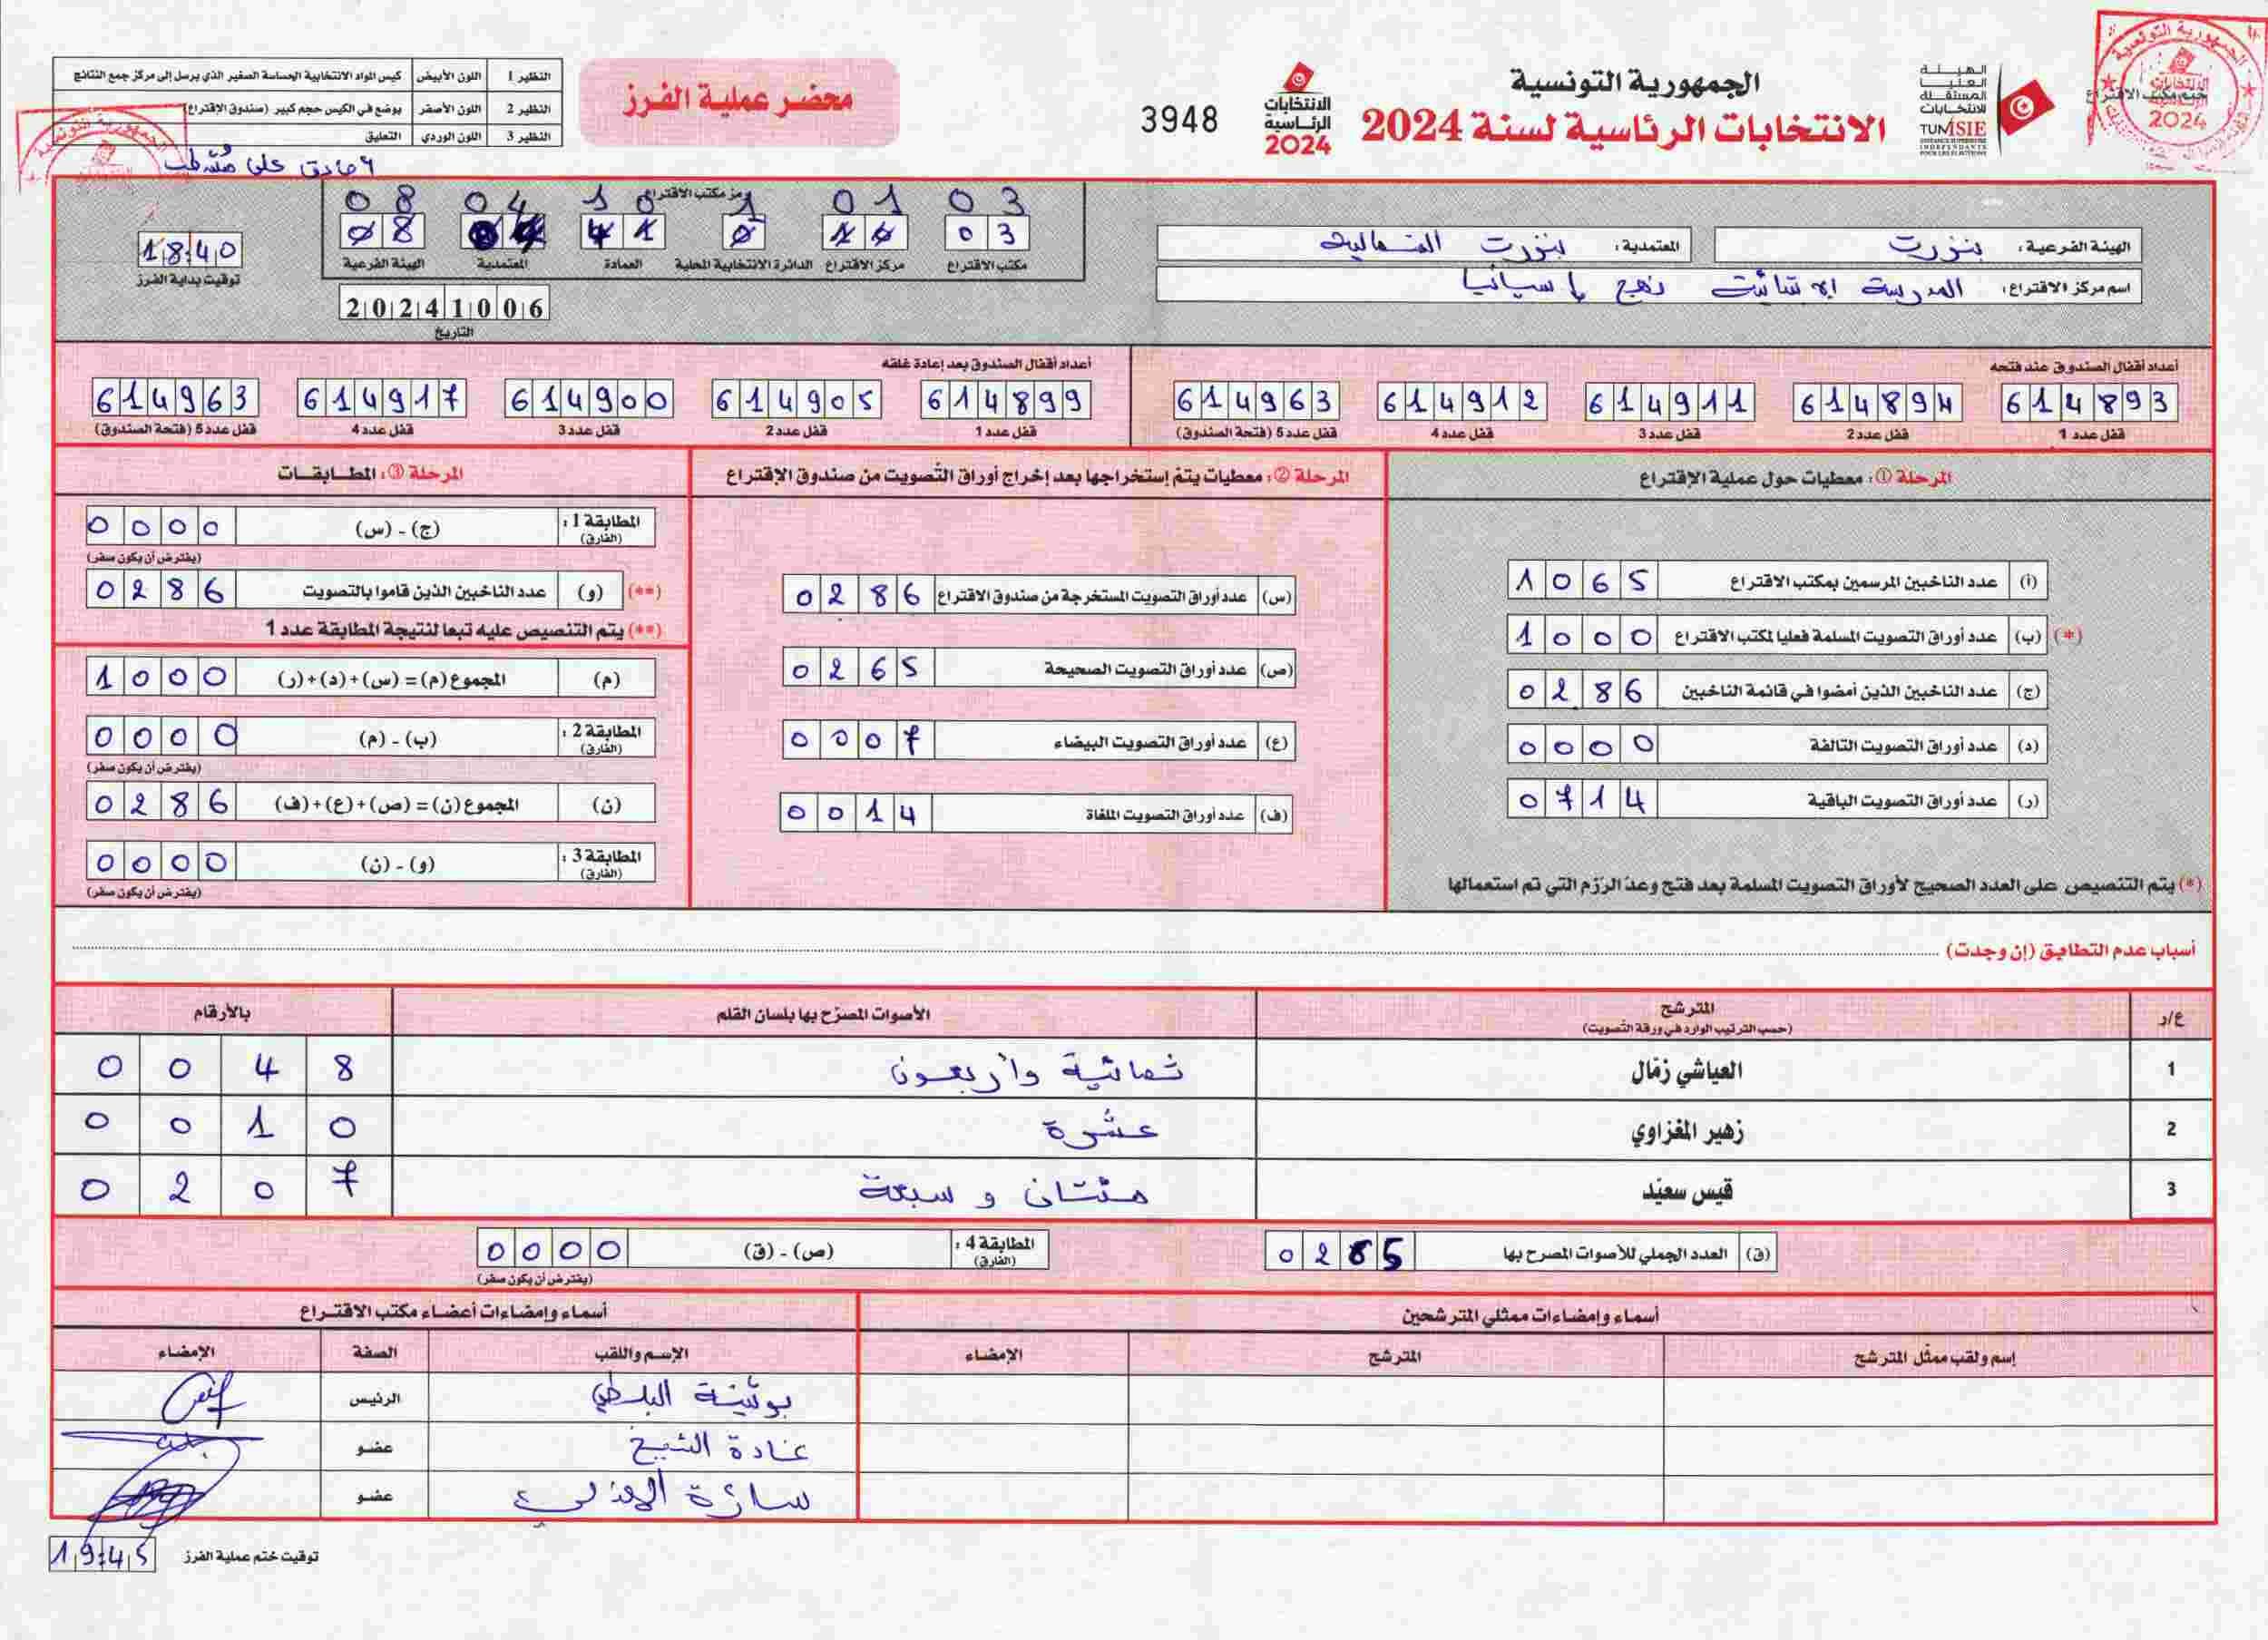 الجمهورية التونسية
الانتخابات الرئاسية لسنة 2024
الهيئة العليا المستقلة للانتخابات
TUNISIE
INSTANCE SUPERIEURE INDEPENDANTE POUR LES ELECTIONS
ختم مكتب الاقتراع
الانتخابات الرئاسية 2024
3948
محضر عملية الفرز
النظير 1 اللون الأبيض كيس المواد الانتخابية الحساسة الصغير الذي يرسل إلى مركز جمع النتائج
النظير 2 اللون الأصفر يوضع في الكيس حجم كبير (صندوق الاقتراع)
النظير 3 اللون الوردي التعليق
الهيئة الفرعية: بنزرت المعتمدية: بنزرت الشمالية
اسم مركز الاقتراع: المدرسة الابتدائية نهج إسبانيا
رمز مكتب الاقتراع
08 04 10 1 01 03
مكتب الاقتراع مركز الاقتراع الدائرة الانتخابية المحلية العمادة المعتمدية الهيئة الفرعية
18:40
توقيت بداية الفرز
20241006
التاريخ
أعداد أقفال الصندوق عند فتحه
614893 614894 614911 614912 614963
قفل عدد 1 قفل عدد 2 قفل عدد 3 قفل عدد 4 قفل عدد 5 (فتحة الصندوق)
أعداد أقفال الصندوق بعد إعادة غلقه
614899 614905 614900 614917 614963
قفل عدد 1 قفل عدد 2 قفل عدد 3 قفل عدد 4 قفل عدد 5 (فتحة الصندوق)
المرحلة ①: معطيات حول عملية الإقتراع
(أ) عدد الناخبين المرسمين بمكتب الاقتراع 1065
(*) (ب) عدد أوراق التصويت المسلمة فعليا لمكتب الاقتراع 1000
(ج) عدد الناخبين الذين أمضوا في قائمة الناخبين 0286
(د) عدد أوراق التصويت التالفة 0000
(ر) عدد أوراق التصويت الباقية 0714
(*) يتم التنصيص على العدد الصحيح لأوراق التصويت المسلمة بعد فتح وعدّ الرّزم التي تم استعمالها
المرحلة ②: معطيات يتم إستخراجها بعد إخراج أوراق التّصويت من صندوق الإقتراع
(س) عدد أوراق التصويت المستخرجة من صندوق الاقتراع 0286
(ص) عدد أوراق التصويت الصحيحة 0265
(ع) عدد أوراق التصويت البيضاء 0007
(ف) عدد أوراق التصويت الملغاة 0014
المرحلة ③: المطابقات
المطابقة 1: (الفارق) (ج) - (س) 0000
(يفترض أن يكون صفر)
(**) (و) عدد الناخبين الذين قاموا بالتصويت 0286
(**) يتم التنصيص عليه تبعا لنتيجة المطابقة عدد 1
(م) المجموع (م) = (س)+(د)+(ر) 1000
المطابقة 2: (الفارق) (ب) - (م) 0000
(يفترض أن يكون صفر)
(ن) المجموع (ن) = (ص)+(ع)+(ف) 0286
المطابقة 3: (الفارق) (و) - (ن) 0000
(يفترض أن يكون صفر)
أسباب عدم التطابق (إن وجدت)
ع/ر المترشح الأصوات المصرّح بها بلسان القلم بالأرقام
(حسب الترتيب الوارد في ورقة التّصويت)
1 العياشي زمّال ثمانية وأربعون 0048
2 زهير المغزاوي عشرة 0010
3 قيس سعيّد مئتان و سبعة 0207
(ق) العدد الجملي للأصوات المصرح بها 0265 المطابقة 4: (الفارق) (ص) - (ق) 0000
(يفترض أن يكون صفر)
أسماء وإمضاءات ممثلي المترشحين أسماء وإمضاءات أعضاء مكتب الاقتراع
إسم ولقب ممثّل المترشح المترشح الإمضاء الإسم واللقب الصفة الإمضاء
بوثينة البلطي الرئيس
غادة الشيخ عضو
سارة عضو
توقيت ختم عملية الفرز 19:45